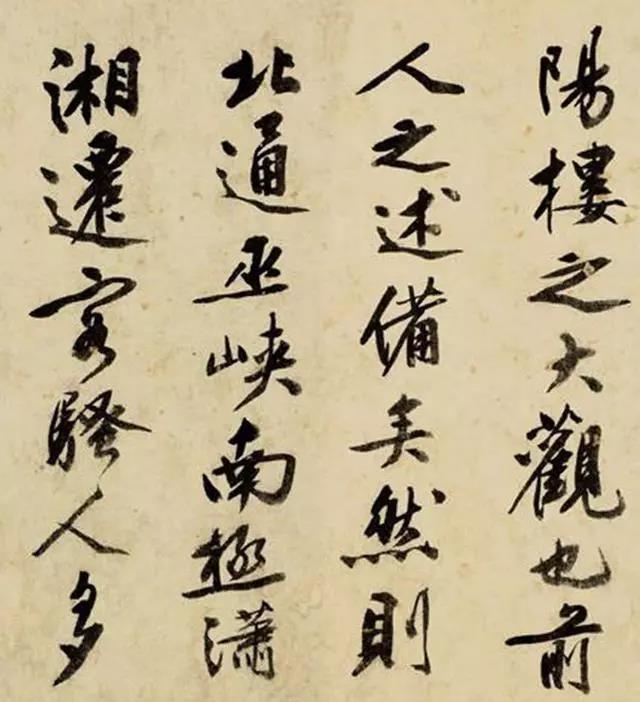 陽樓之大觀也前
人之述備矣然則
北通巫峽南極瀟
湘遷客騷人多